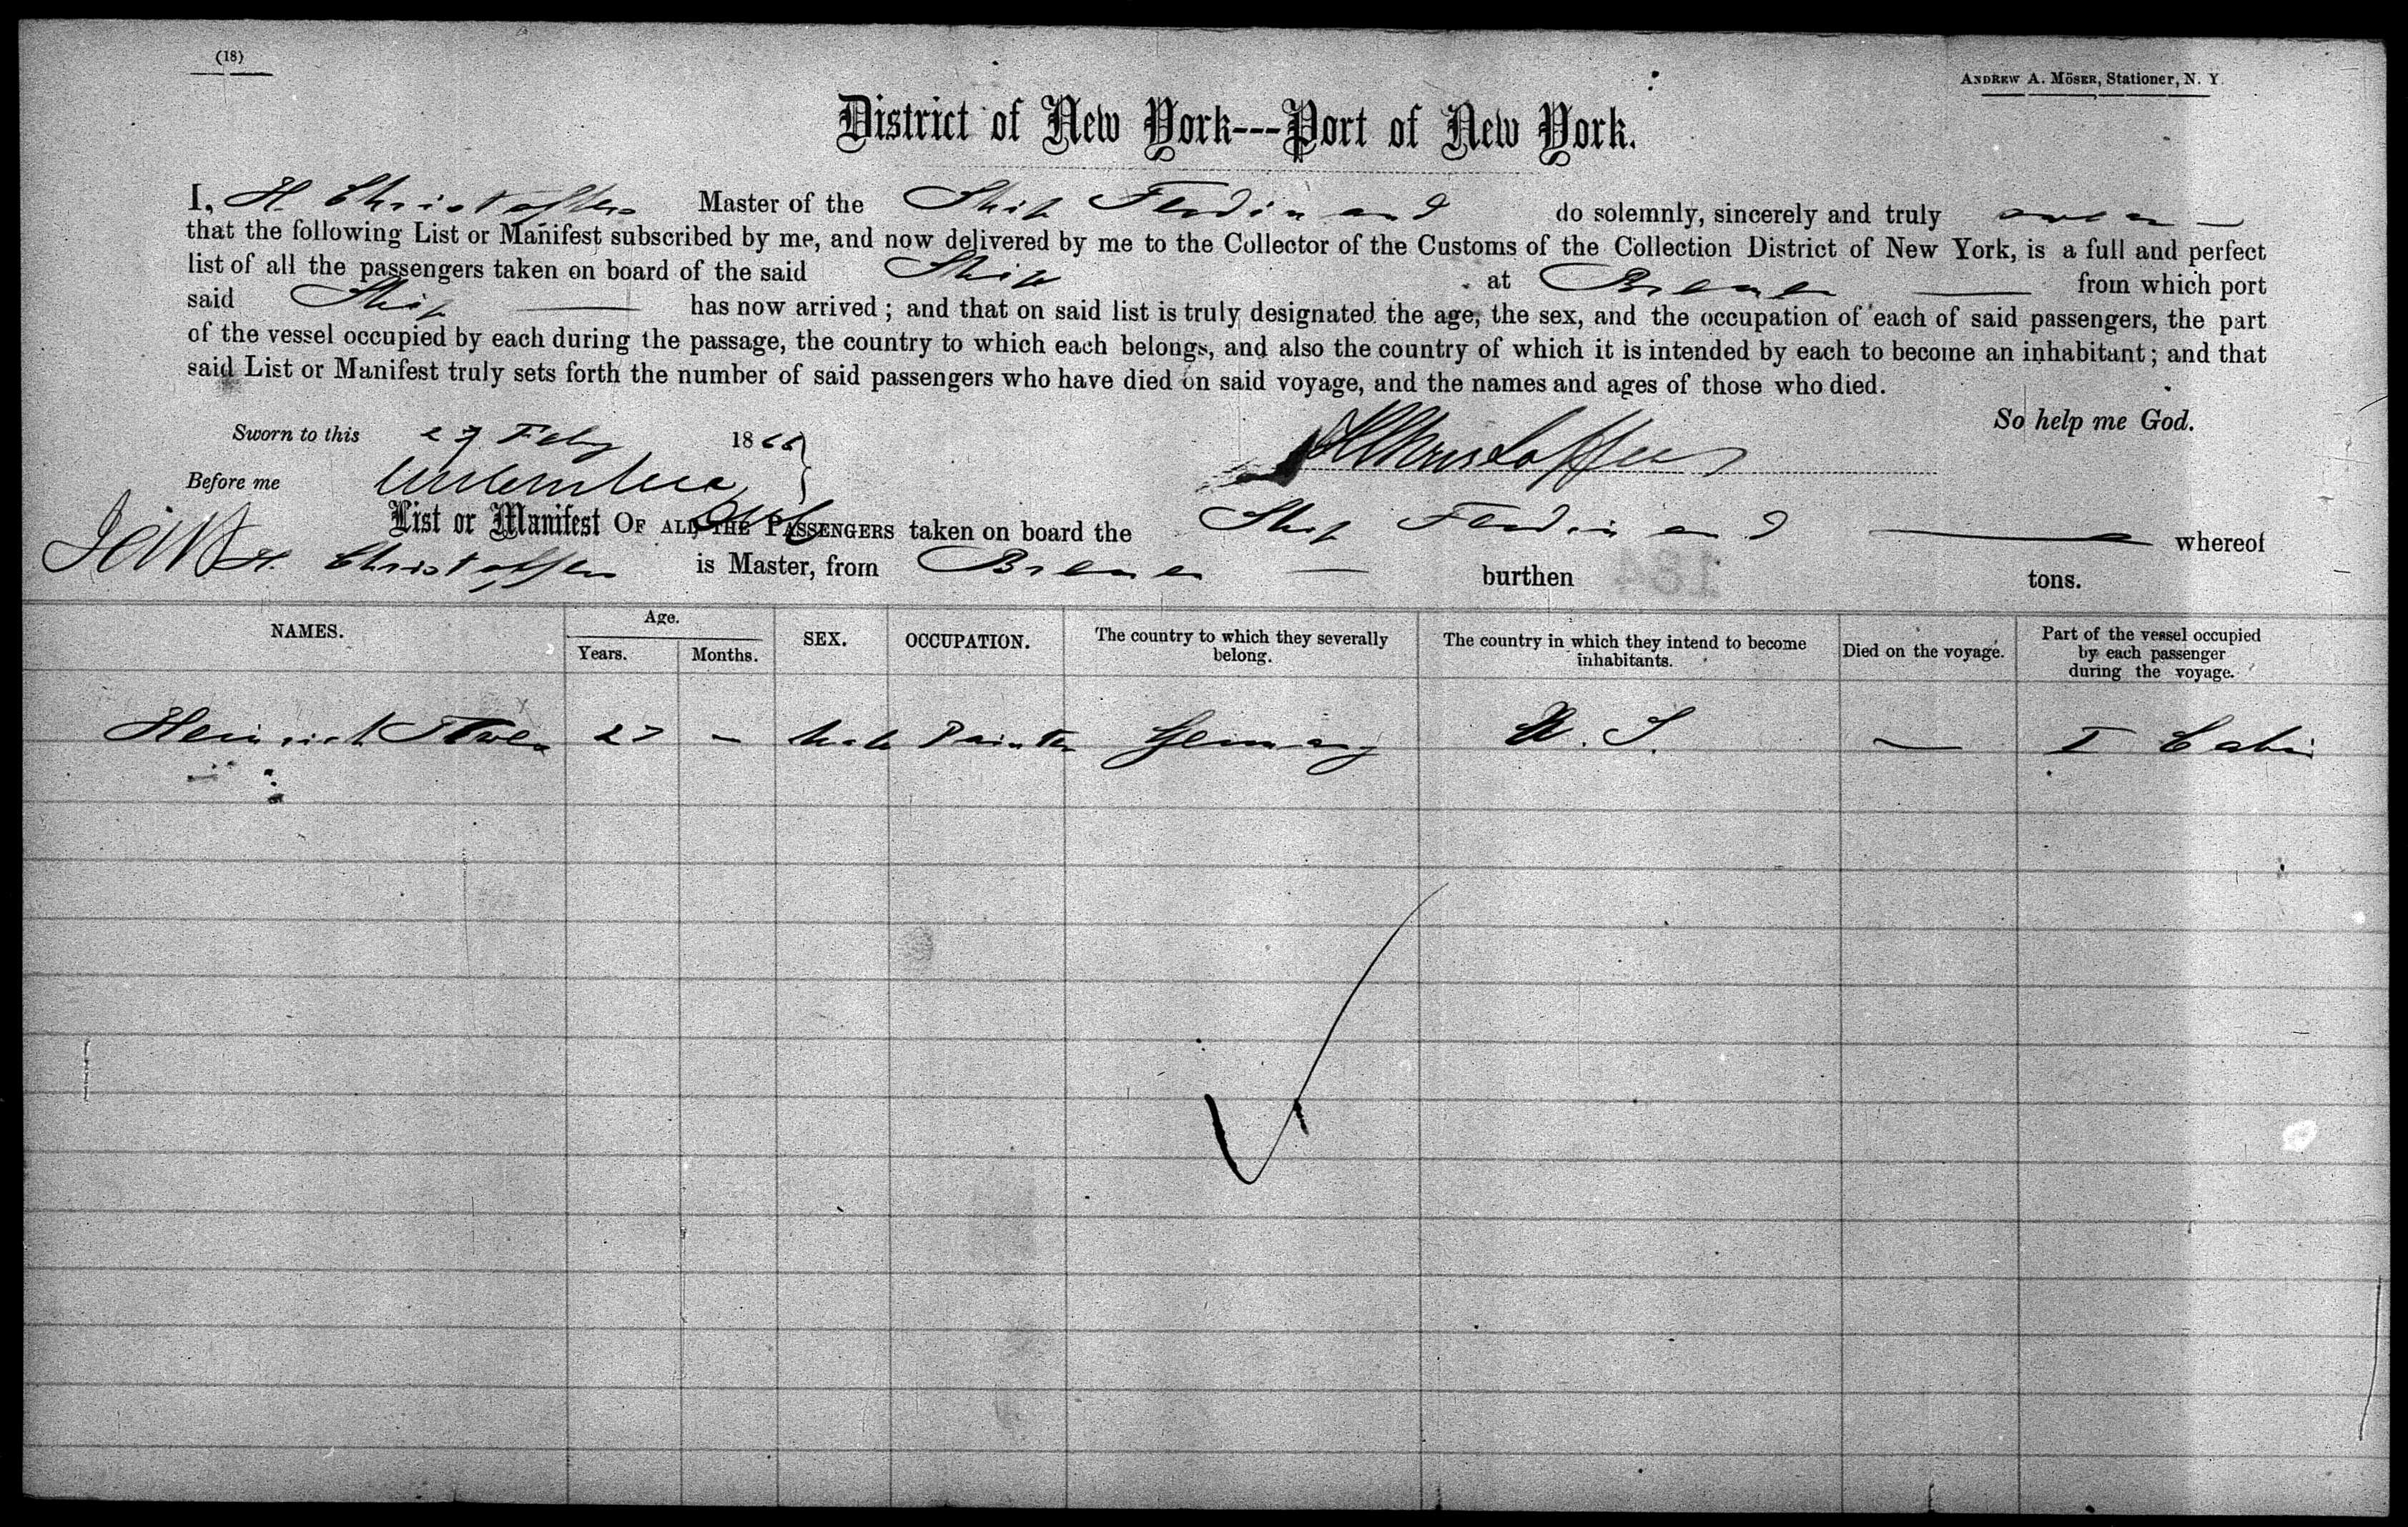 (18)
ANDREW A. MÖSER, Stationer, N. Y.
District of New York---Port of New York.
I, H. Christoffers Master of the Ship Ferdinand do solemnly, sincerely and truly swear
that the following List or Manifest subscribed by me, and now delivered by me to the Collector of the Customs of the Collection District of New York, is a full and perfect
list of all the passengers taken on board of the said Ship at Bremen from which port
said Ship has now arrived ; and that on said list is truly designated the age, the sex, and the occupation of each of said passengers, the part
of the vessel occupied by each during the passage, the country to which each belongs, and also the country of which it is intended by each to become an inhabitant ; and that
said List or Manifest truly sets forth the number of said passengers who have died on said voyage, and the names and ages of those who died.
So help me God.
Sworn to this 27 Feby 1866
HChristoffers
Before me
List or Manifest OF ALL THE PASSENGERS taken on board the Ship Ferdinand whereof
H. Christoffers is Master, from Bremen burthen tons.
NAMES. Age. Years. Months. SEX. OCCUPATION. The country to which they severally belong. The country in which they intend to become inhabitants. Died on the voyage. Part of the vessel occupied by each passenger during the voyage.
Heinrich 27 - Male Painter Germany U. S. — I Cabin